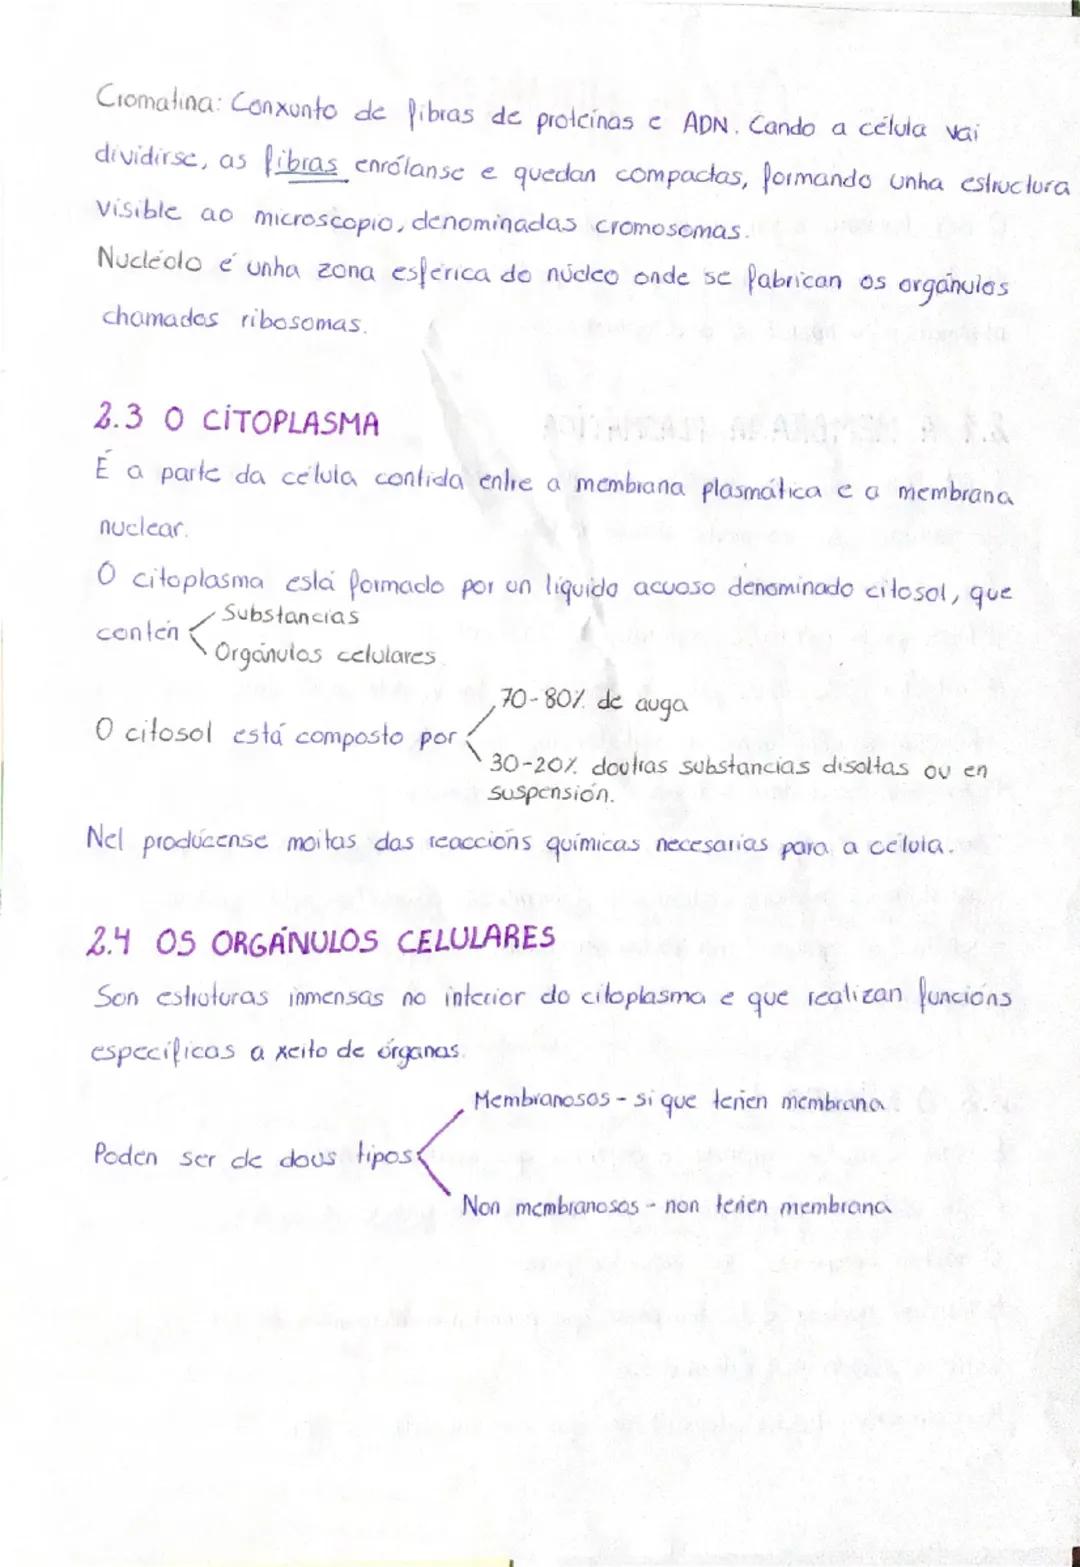 Cromatina: Conxunto de fibras de proteínas e ADN. Cando a célula vai
dividirse, as fibras enrólanse e quedan compactas, formando unha estructura
visible ao microscopio, denominadas cromosomas.
Nucléolo é unha zona esférica do núcleo onde se fabrican os orgánulos
chamados ribosomas.
2.3 O CITOPLASMA
É a parte da célula contida entre a membrana plasmática e a membrana
nuclear.
O citoplasma está formado por un líquido acuoso denominado citosol, que
contén
Substancias
Orgánulos celulares.
O citosol está composto por
70-80% de auga
30-20% doutras substancias disoltas ou en
suspensión.
Nel prodúcense moitas das reaccións químicas necesarias para a célula.
2.4 OS ORGÁNULOS CELULARES
Son estruturas inmensas no interior do citoplasma e que realizan funcións
específicas a xeito de órganas.
Poden ser de dous tipos
Membranosos - si que teñen membrana
Non membranosos - non teñen membrana